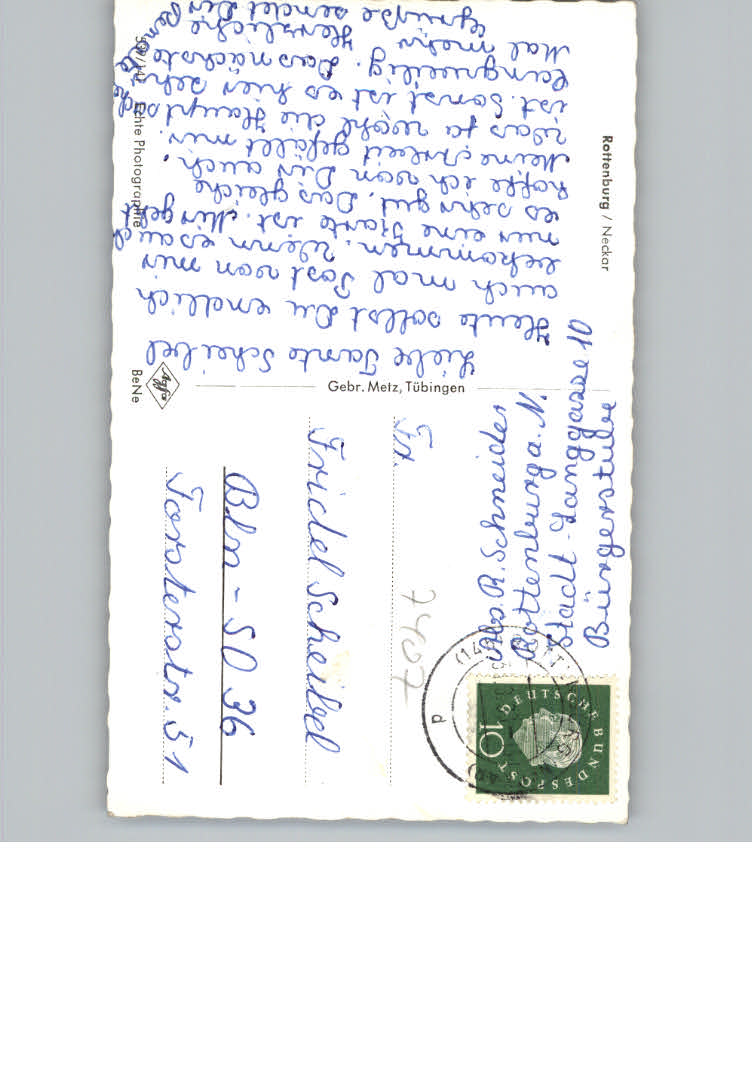 Rottenburg / Neckar
Liebe Tante Scheibel
Heute sollst Du endlich
auch mal Post von mir
bekommen. Wenn es auch
nur eine Karte ist. Mir geht
es sehr gut. Das gleiche
hoffe ich von Dir auch.
Meine Arbeit gefällt mir.
Was ja wohl die Hauptsache
ist. Sonst ist es hier sehr
langweilig. Das nächste
Mal mehr. Herzliche
Grüße sendet Dir
Echte Photographie
Gebr. Metz, Tübingen
Agfa
BeNe
Abs. R. Schneider
Rottenburg a. N.
Stadt-Langgasse 10
7407
Fr.
Fridel Scheibel
Bln - SO 36
Forsterstr. 51
DEUTSCHE BUNDESPOST
10